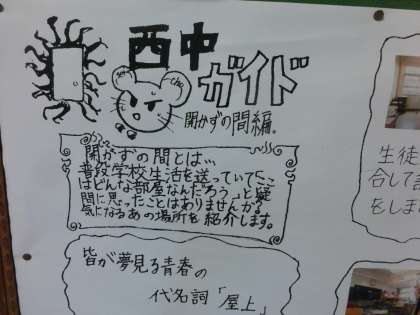 西中
ガイド
開かずの間編。
開かずの間とは…
普段学校生活を送っていて「ここ
はどんな部屋なんだろう」と疑
問に思ったことはありませんか？
気になるあの場所を紹介します。
皆が夢見る青春の
代名詞「屋上」
生徒
合して
をしま